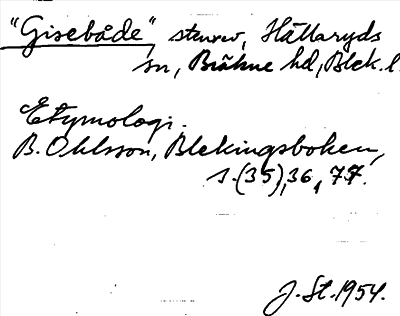 "Gisebåde" stenrev, Hällaryds
sn, Bräkne hd, Blek. l.
Etymologi.
B. Ohlsson, Blekingsboken,
s. (35), 36, 77.
J. St. 1954.